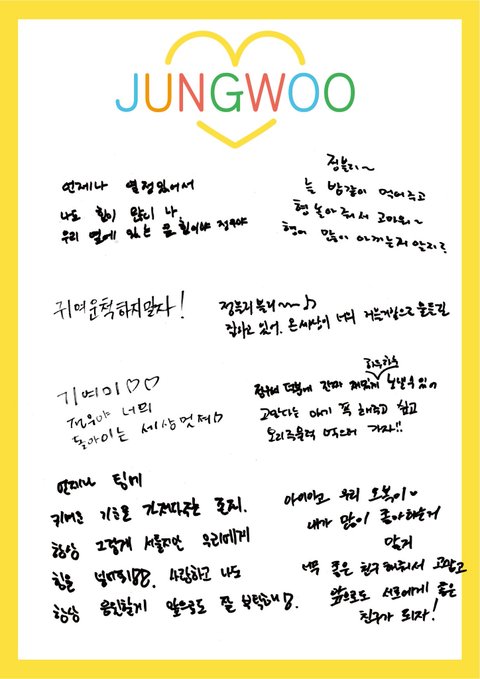 JUNGWOO
언제나 열정있어서
나도 힘이 많이 나
우리 옆에 있는 힘이야 정우야
정블리~
늘 밥같이 먹어주고
형 놀아줘서 고마워~
형이 많이 아끼는거 알지?
귀여운척하지말자!
정블리블리~~♪
잘하고 있어. 온세상이 너의 거친
귀여미♡♡
정우야 너의
돌아이는 세상멋져♡
정우 덕분에 진짜 재밌게 하루하루 보낼 수 있어
고맙다는 얘기 꼭 해주고 싶고
오리주물럭 먹으러 가자!!
언제나 팀에
귀여운 기운을 가져다주는 존재.
항상 그렇게 서툴지만 우리에게
힘을 사랑하고 나도
항상 응원할게 앞으로도 잘 부탁해
아이아고 우리 오복이♥
내가 많이 좋아하는거
알지
너무 좋은 친구해줘서 고맙고
앞으로도 서로에게 좋은
친구가 되자!